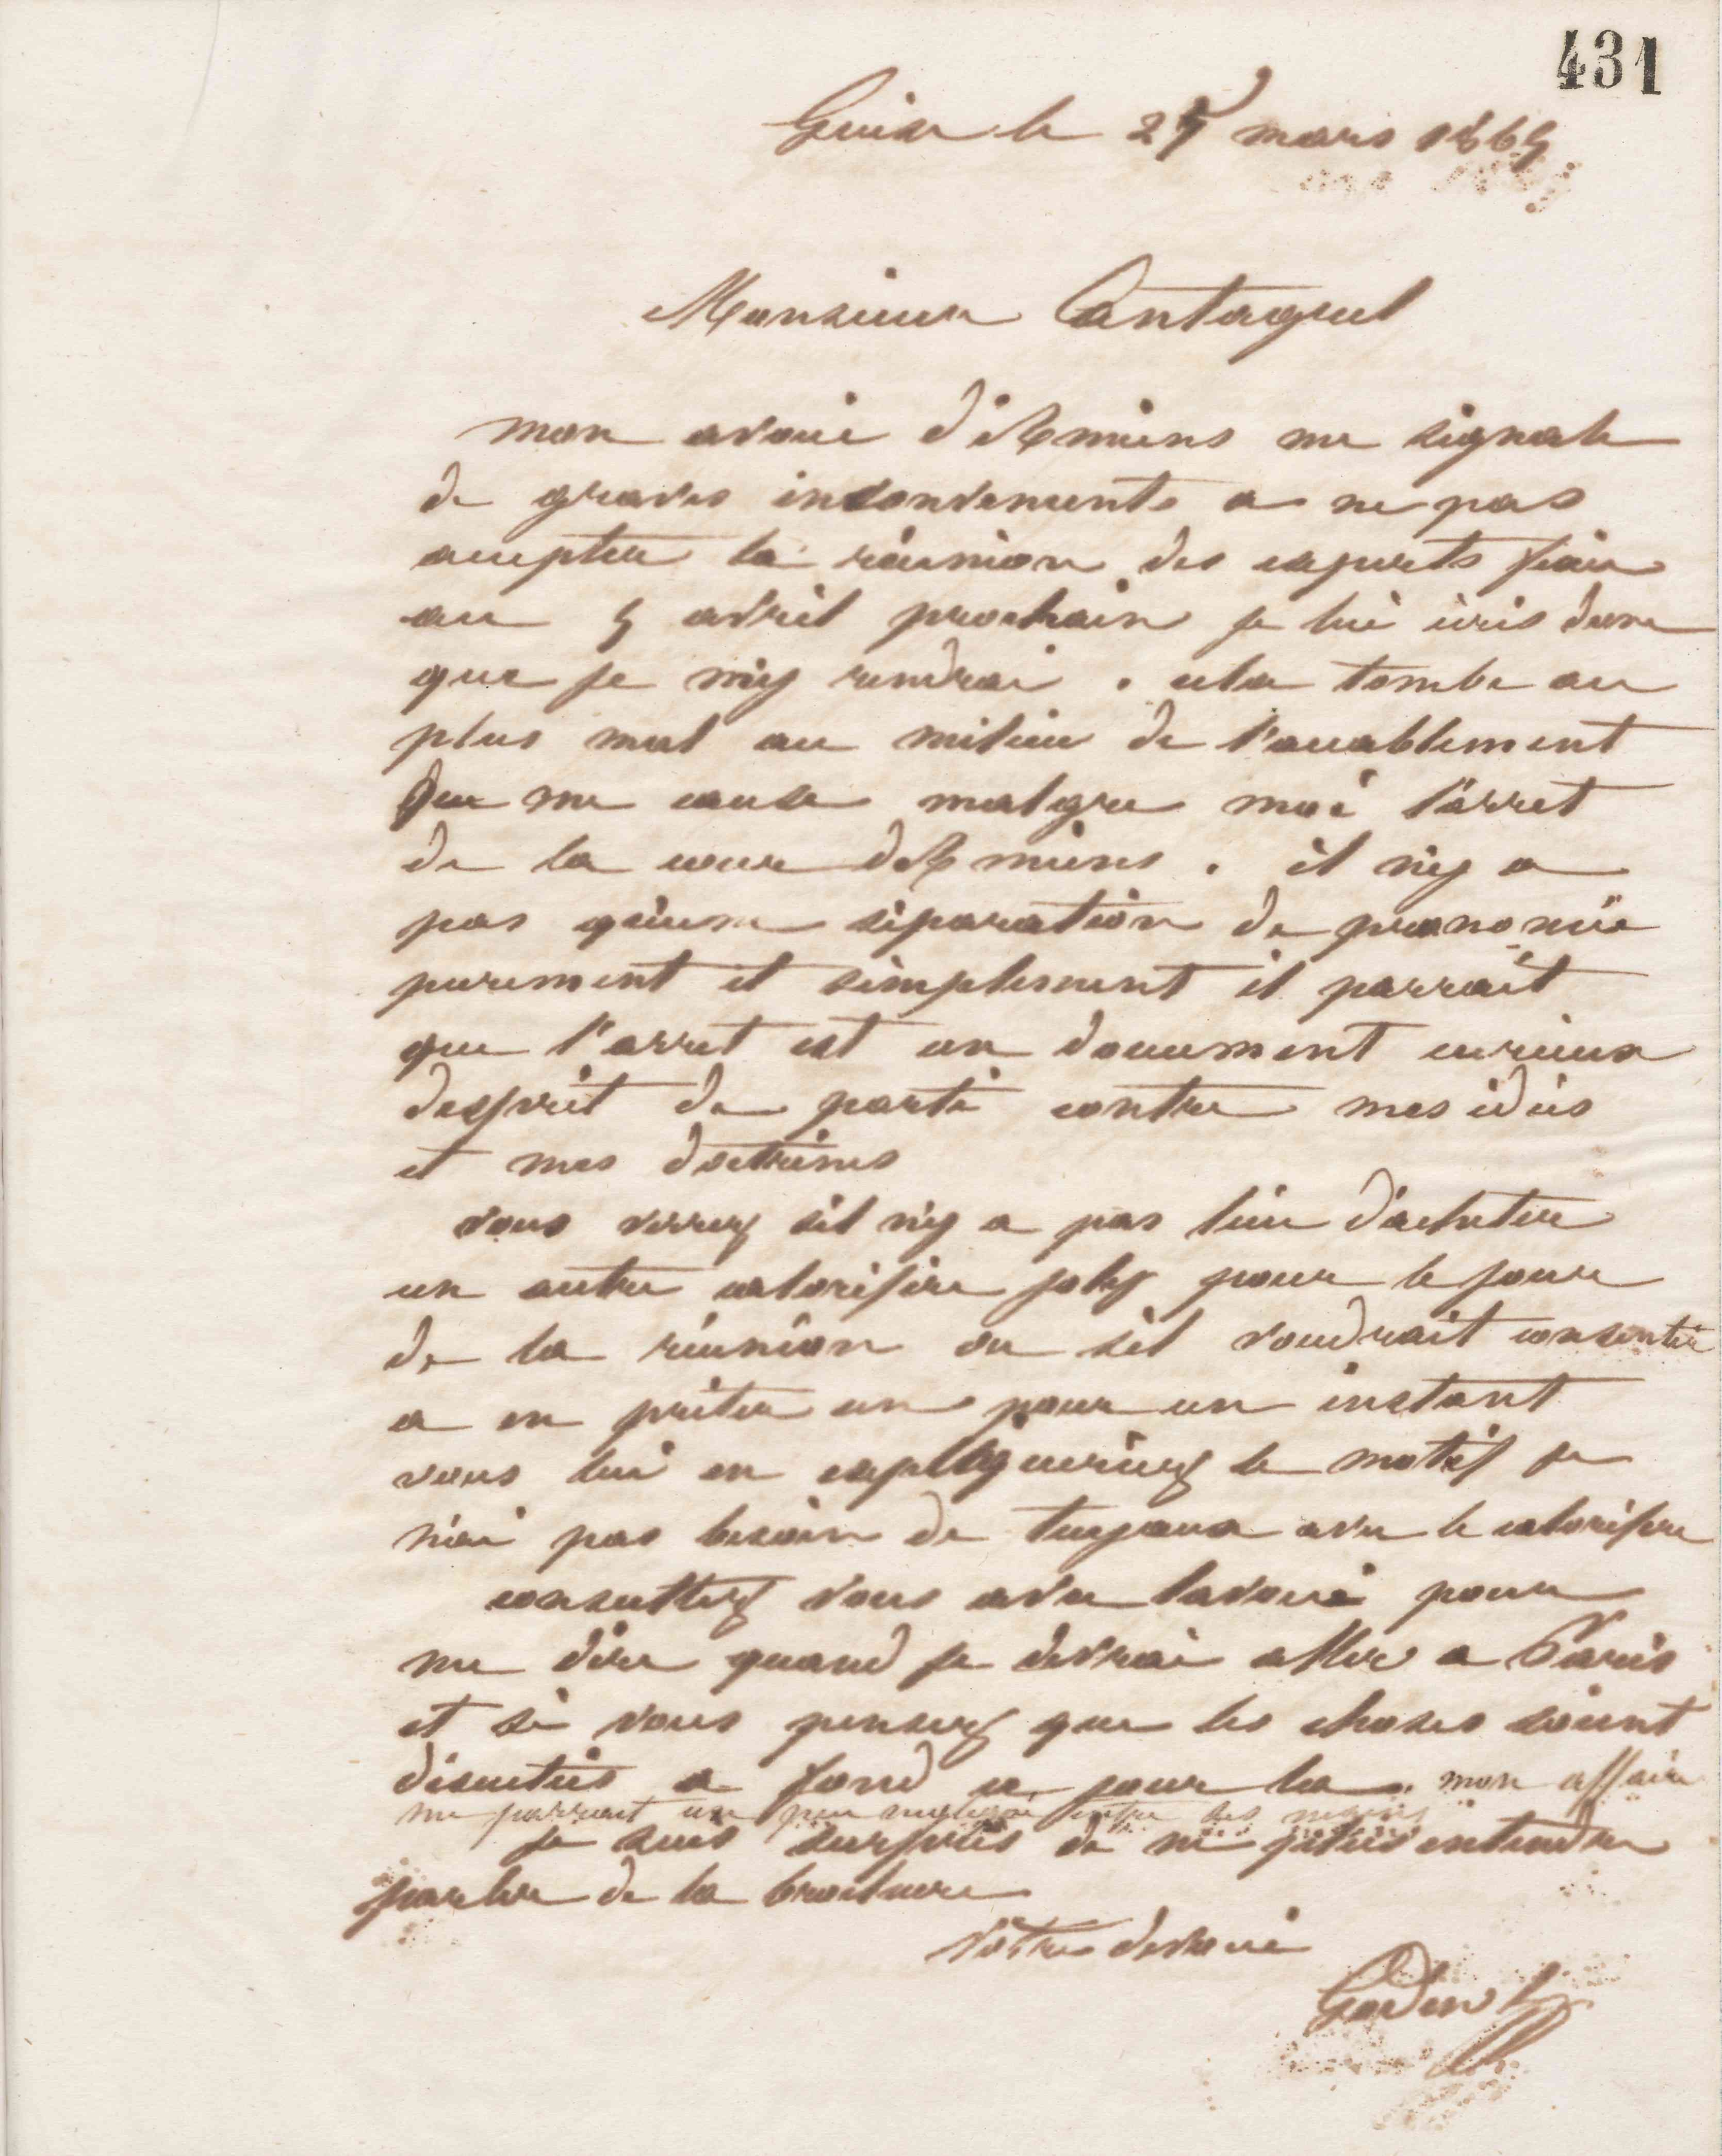 431
Guise le 27 mars 1865
Monsieur Cantagrel
mon avoué d'Amiens me signale
de graves inconvenients a ne pas
accepter la réunion des experts fixée
au 5 avril prochain je lui écris donc
que je m'y rendrai . cela tombe au
plus mal au milieu de l'accablement
que me cause malgre moi l'arret
de la cour d'Amiens . il n'y a
pas qu'une séparation de prononcée
purement et simplement il parrait
que l'arret est un document curieux
desprit de parti contre mes idées
et mes doctrines
vous verrez sil n'y a pas lieu d'acheter
un autre calorifère joly pour le jour
de la réunion ou sil voudrait consentir
a en prêter un pour un instant
vous lui en expliqueriez le motif je
n'ai pas besoin de tuyaux avec le calorifere
consultez vous avec lavoué pour
me dire quand je devrai aller a Paris
et si vous pensez que les choses soient
discutées a fond ce jour la . mon affaire
me parrait un peu negligée entre ses mains
je suis surpris de ne plus entendre
parler de la brochure
votre devoué
Godin